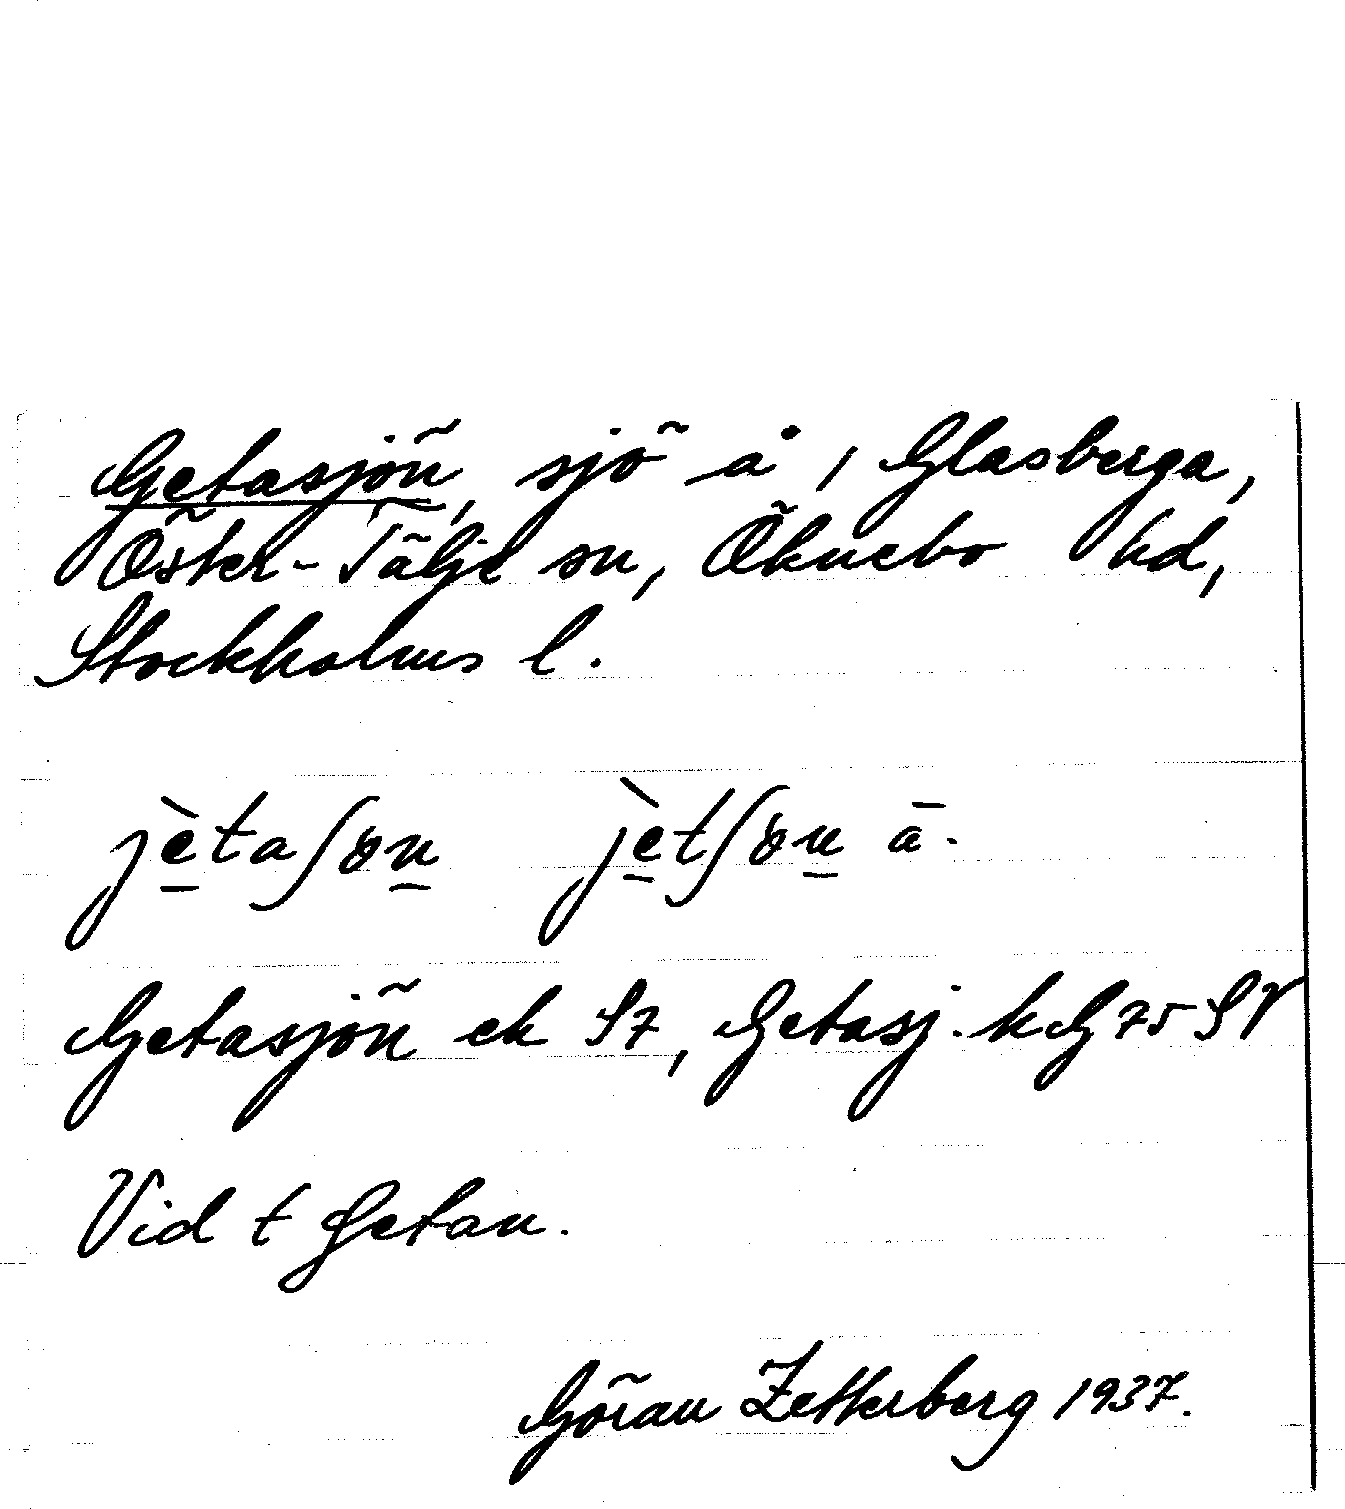 Getasjön, sjö å, Glasberga,
Öster-Tälje sn, Öknebo hd,
Stockholms l.
jètaʃön jètʃön ā.
Getasjön ek S7, Getasj. kG 75 SV
Vid t Getan.
Göran Zetterberg 1937.